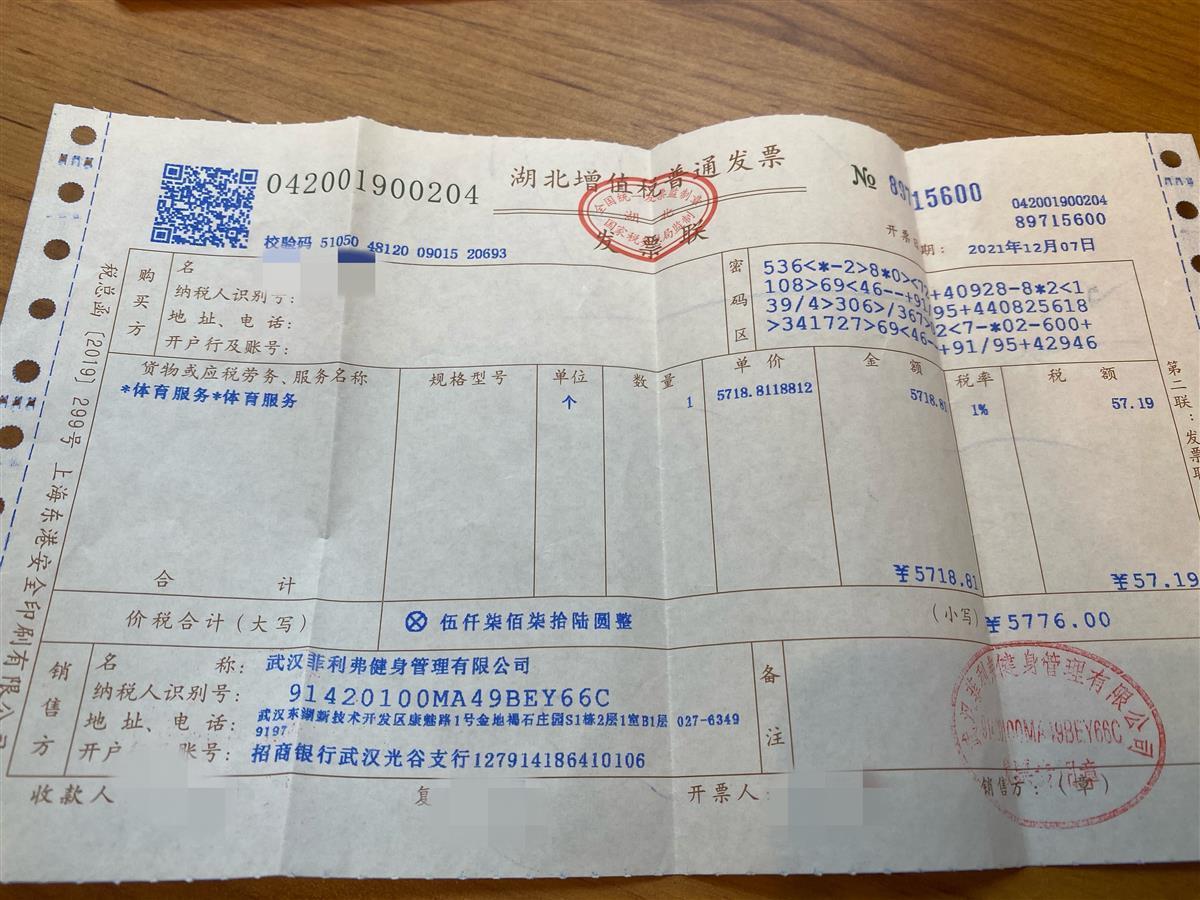 042001900204
湖北增值税普通发票
发票联
№ 89715600
042001900204
89715600
校验码 51050 48120 09015 20693
开票日期: 2021年12月07日
税总函〔2019〕299号 上海东港安全印刷有限公司
购买方
名
纳税人识别号:
地 址、电 话:
开户行及账号:
密码区
536<*-2>8*0><72+40928-8*2<1
108>69<46--+91/95+440825618
39/4>306>/367>02<7-*02-600+
>341727>69<46--+91/95+42946
货物或应税劳务、服务名称 规格型号 单位 数量 单价 金额 税率 税额
*体育服务*体育服务 个 1 5718.8118812 5718.81 1% 57.19
合 计 ¥5718.81 ¥57.19
价税合计(大写) ⊗ 伍仟柒佰柒拾陆圆整 (小写) ¥5776.00
第二联:发票联
销售方
名 称: 武汉菲利弗健身管理有限公司
纳税人识别号: 91420100MA49BEY66C
地 址、电 话: 武汉东湖新技术开发区康魅路1号金地褐石庄园S1栋2层1室B1层 027-6349
9197
开户 账号: 招商银行武汉光谷支行127914186410106
备注
收款人
复
开票人:
销售方:(章)
全国统一发票监制章
湖北
国家税务总局监制
武汉菲利弗健身管理有限公司
91420100MA49BEY66C
发票专用章